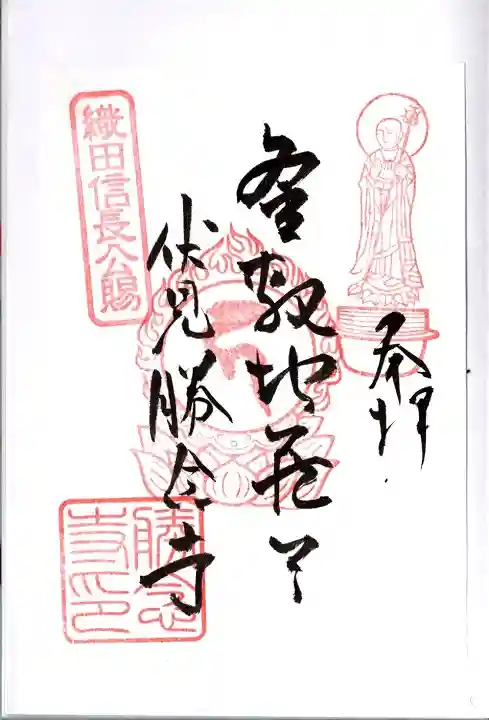 奉拝
釜敷地蔵尊
伏見勝念寺
織田信長公賜
勝念寺印